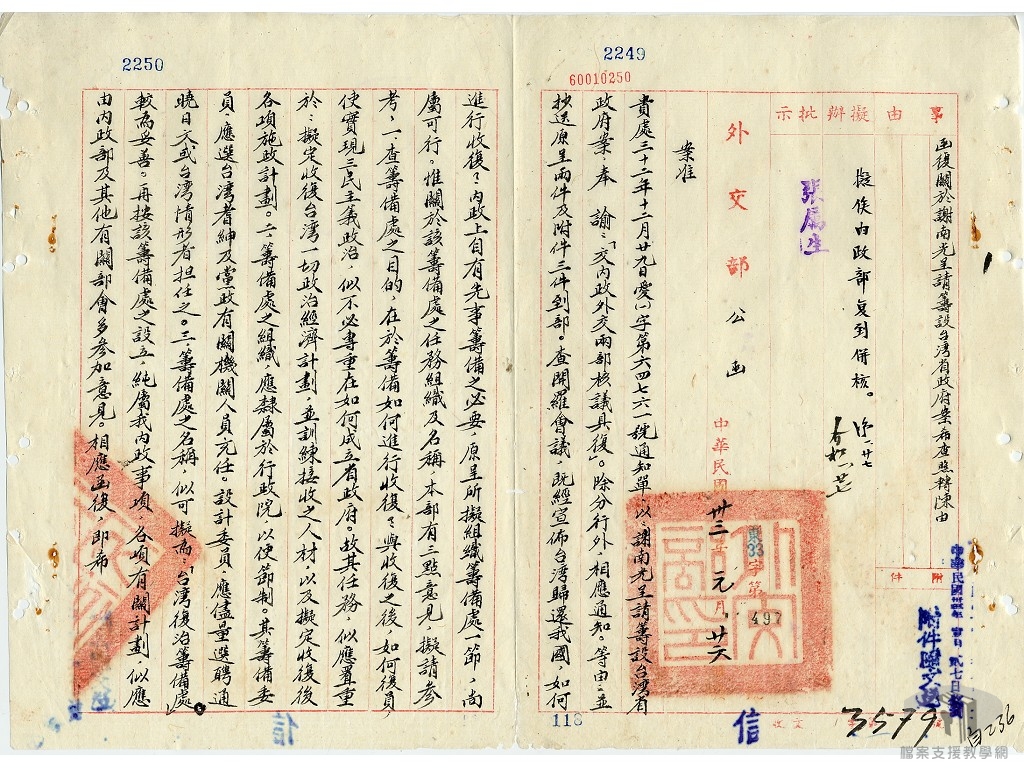 2249
60010250
事由擬辦批示
附件
函復關於謝南光呈請籌設台灣省政府案希查照轉陳由
擬俟內政部复到併核。
張厲生
外交部公函
中華民國卅三年元月廿六
東33字第497
附件隨文送
案准
貴處三十二年十二月廿九日愛(一)字第六四七六一號通知單,以:謝南光呈請籌設台灣省
政府案,奉 諭:「交內政外交兩部核議具復」。除分行外,相應通知。等由;並
抄送原呈兩件及附件三件到部。查開羅會議,既經宣佈台灣歸還我國,如何
118
信
3579
2250
進行收復,內政上自有先事籌備之必要,原呈所擬組織籌備處一節,尚
屬可行。惟關於該籌備處之任務組織及名稱,本部有三點意見,擬請參
考,一、查籌備處之目的,在於籌備如何進行收復,與收復之後,如何復員,
使實現三民主義政治,似不必專重在如何成立省政府。故其任務,似應置重
於:擬定收復台灣一切政治經濟計劃,並訓練接收之人材以及擬定收復後
各項施政計劃。二、籌備處之組織,應隸屬於行政院,以便節制。其籌備委
員,應選台灣耆紳及黨政有關機關人員充任。設計委員,應儘量選聘通
曉日文或台灣情形者担任之。三、籌備處之名稱,似可擬為:「台灣復治籌備處」
較為妥善。再按該籌備處之設立,純屬我內政事項,各項有關計劃,似應
由內政部及其他有關部會多參加意見。相應函復,即希
信
檔案支援教學網